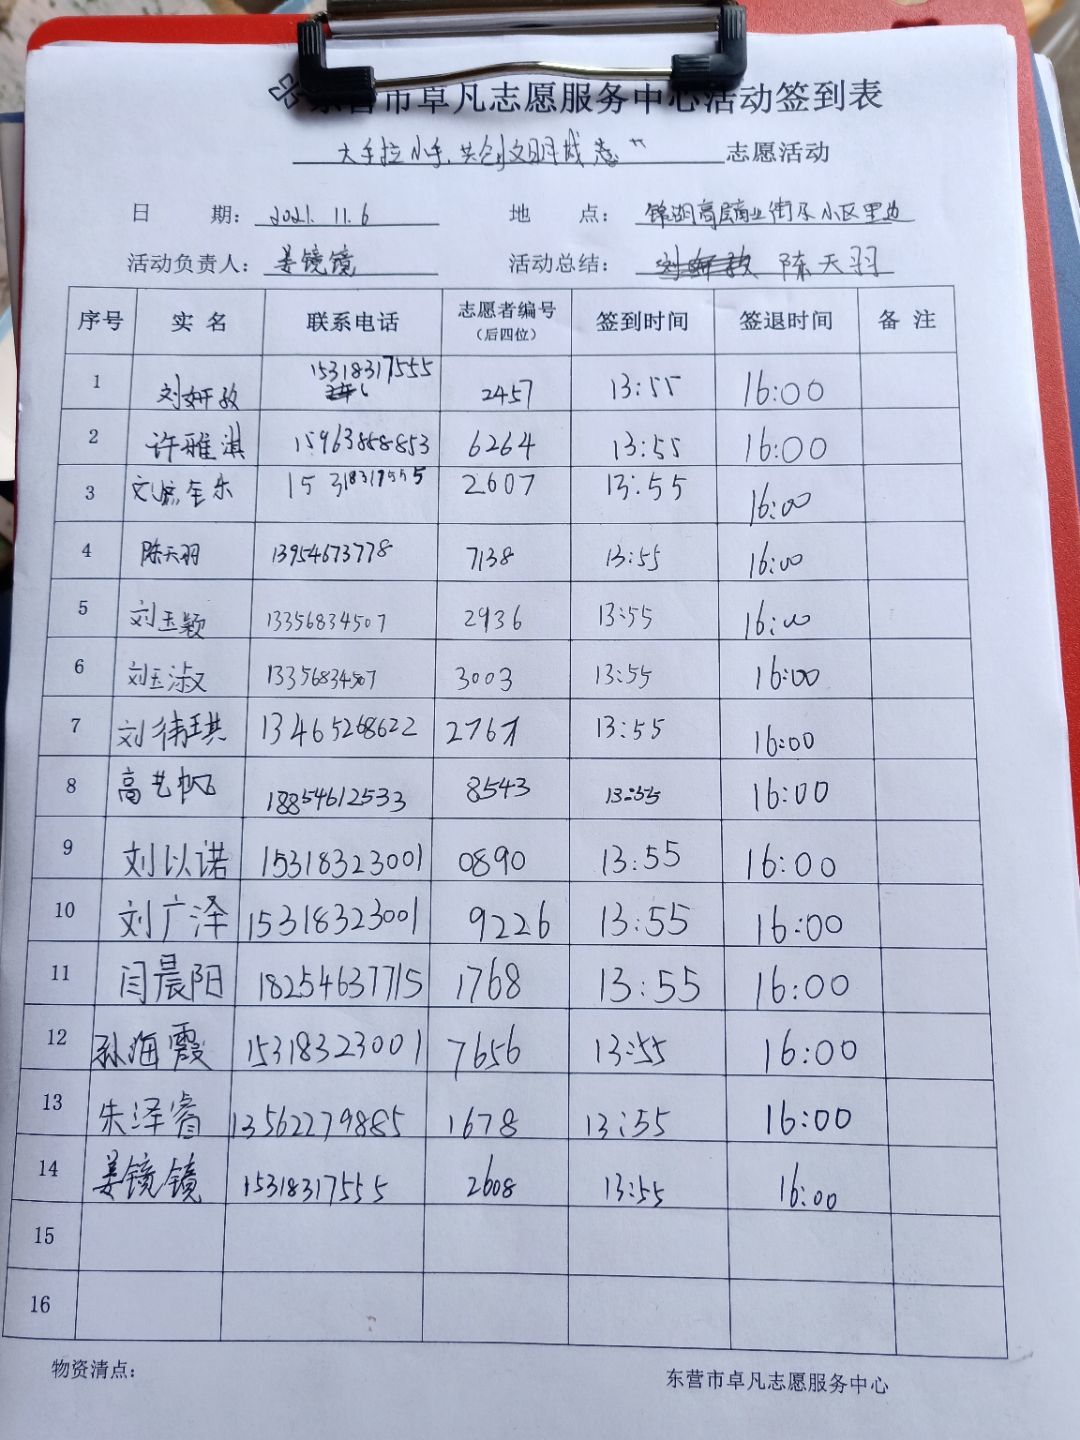 东营市卓凡志愿服务中心活动签到表
大手拉小手,共创文明城 志愿活动
日 期: 2021. 11. 6 地 点: 锦湖高层商业街及小区里边
活动负责人: 姜镜镜 活动总结: 陈天羽
序号 实名 联系电话 志愿者编号(后四位) 签到时间 签退时间 备注
1 刘妍孜 15318317555 2457 13:55 16:00
2 许雅淇 15963888853 6264 13:55 16:00
3 刘 15318317555 2607 13:55 16:00
4 陈天羽 13954673778 7138 13:55 16:00
5 刘玉颖 13356834507 2936 13:55 16:00
6 刘玉淑 13356834507 3003 13:55 16:00
7 刘祎琪 13465268622 2767 13:55 16:00
8 高艺帆 18854612533 8543 13:55 16:00
9 刘以诺 15318323001 0890 13:55 16:00
10 刘广泽 15318323001 9226 13:55 16:00
11 闫晨阳 18254637715 1768 13:55 16:00
12 孙海霞 15318323001 7656 13:55 16:00
13 朱泽睿 13562279885 1678 13:55 16:00
14 姜镜镜 15318317555 2608 13:55 16:00
15
16
物资清点: 东营市卓凡志愿服务中心